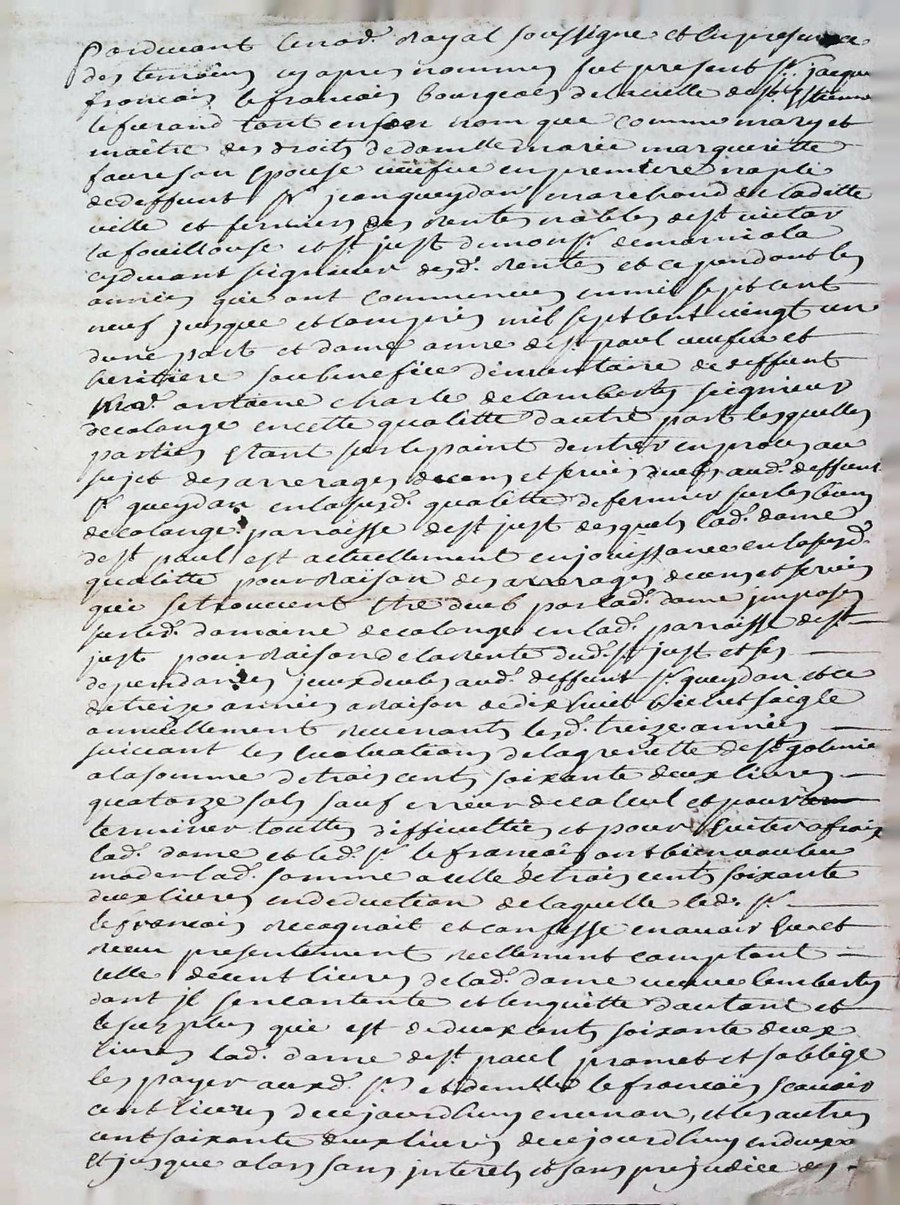 Pardevant le no.re Royal soussigné et en presence
des temoins cy apres nommes fut present Sr. jacque
francois lefrancois bourgeois de la ville de St. Estienne
le furand tant en son nom que comme mary et
maitre des droits de damlle marie margueritte
faure son epouse veufue en premiere nopce
de deffunt Sr. jean queydan marchand de laditte
ville et fermier des rentes nobles de St. victor
la fouillouse et St. just de mons.r de
cydevant seigneur desd. rentes et ce pendant les
années qui ont commencées en mil sept cent
neuf jusque et compris mil sept cent vingt un
dune part et dame anne de St. paul veufue et
heritiere sou benefice dinventaire de deffunt
antoine charle de lamberty seigneur
de colonge en cette qualitte dautre part lesquelles
parties etant sur le point dentrer en proces au
sujet des arrerages de cens et servis dues aud. deffunt
Sr. queydan en la susd. qualitte de fermier sur les biens
de colonge parroisse de St. just desquels lad. dame
de St. paul est actuellement en jouissance en la susd.
qualitte pour raison des arrerages de cens et servis
qui se trouvent etre dues par lad. dame imposes
sur led. domaine de colonge en lad. parroisse de St.
just pour raison de la rente dud. St. just et ses
dependances jceux dues aud. deffunt Sr. queydan et ce
de treize années a raison de dixhuit bichet seigle
annuellement revenants lesd. treize années
suivant les evaluations de la grenette de St. golmier
a la somme de trois cents soixante deux livres
quatorze sols sauf erreur de calcul et pour
terminer toutes difficulties et pour eviter a fraix
lad. dame et led. Sr. le francois ont bien voulu
moder lad. somme a celle de trois cents soixante
deux livres en deduction de laquelle led. Sr.
le francois recognoit et confesse en avoir heu et
receu presentement reellement comptant
celle de cent livres de lad. dame veuve lamberty
dont jl sen contente et len quitte dautant et
le surplus qui est de deux cents soixante deux
livres lad. dame de St. paul promet et soblige
les payer auxd. Sr. et demlle le francois scavoir
cent livres de ce jourdhuy en un an, et les autres
cent soixante deux livres de ce jourdhuy en deux
et jusque alors sans jnterets et sans prejudice des